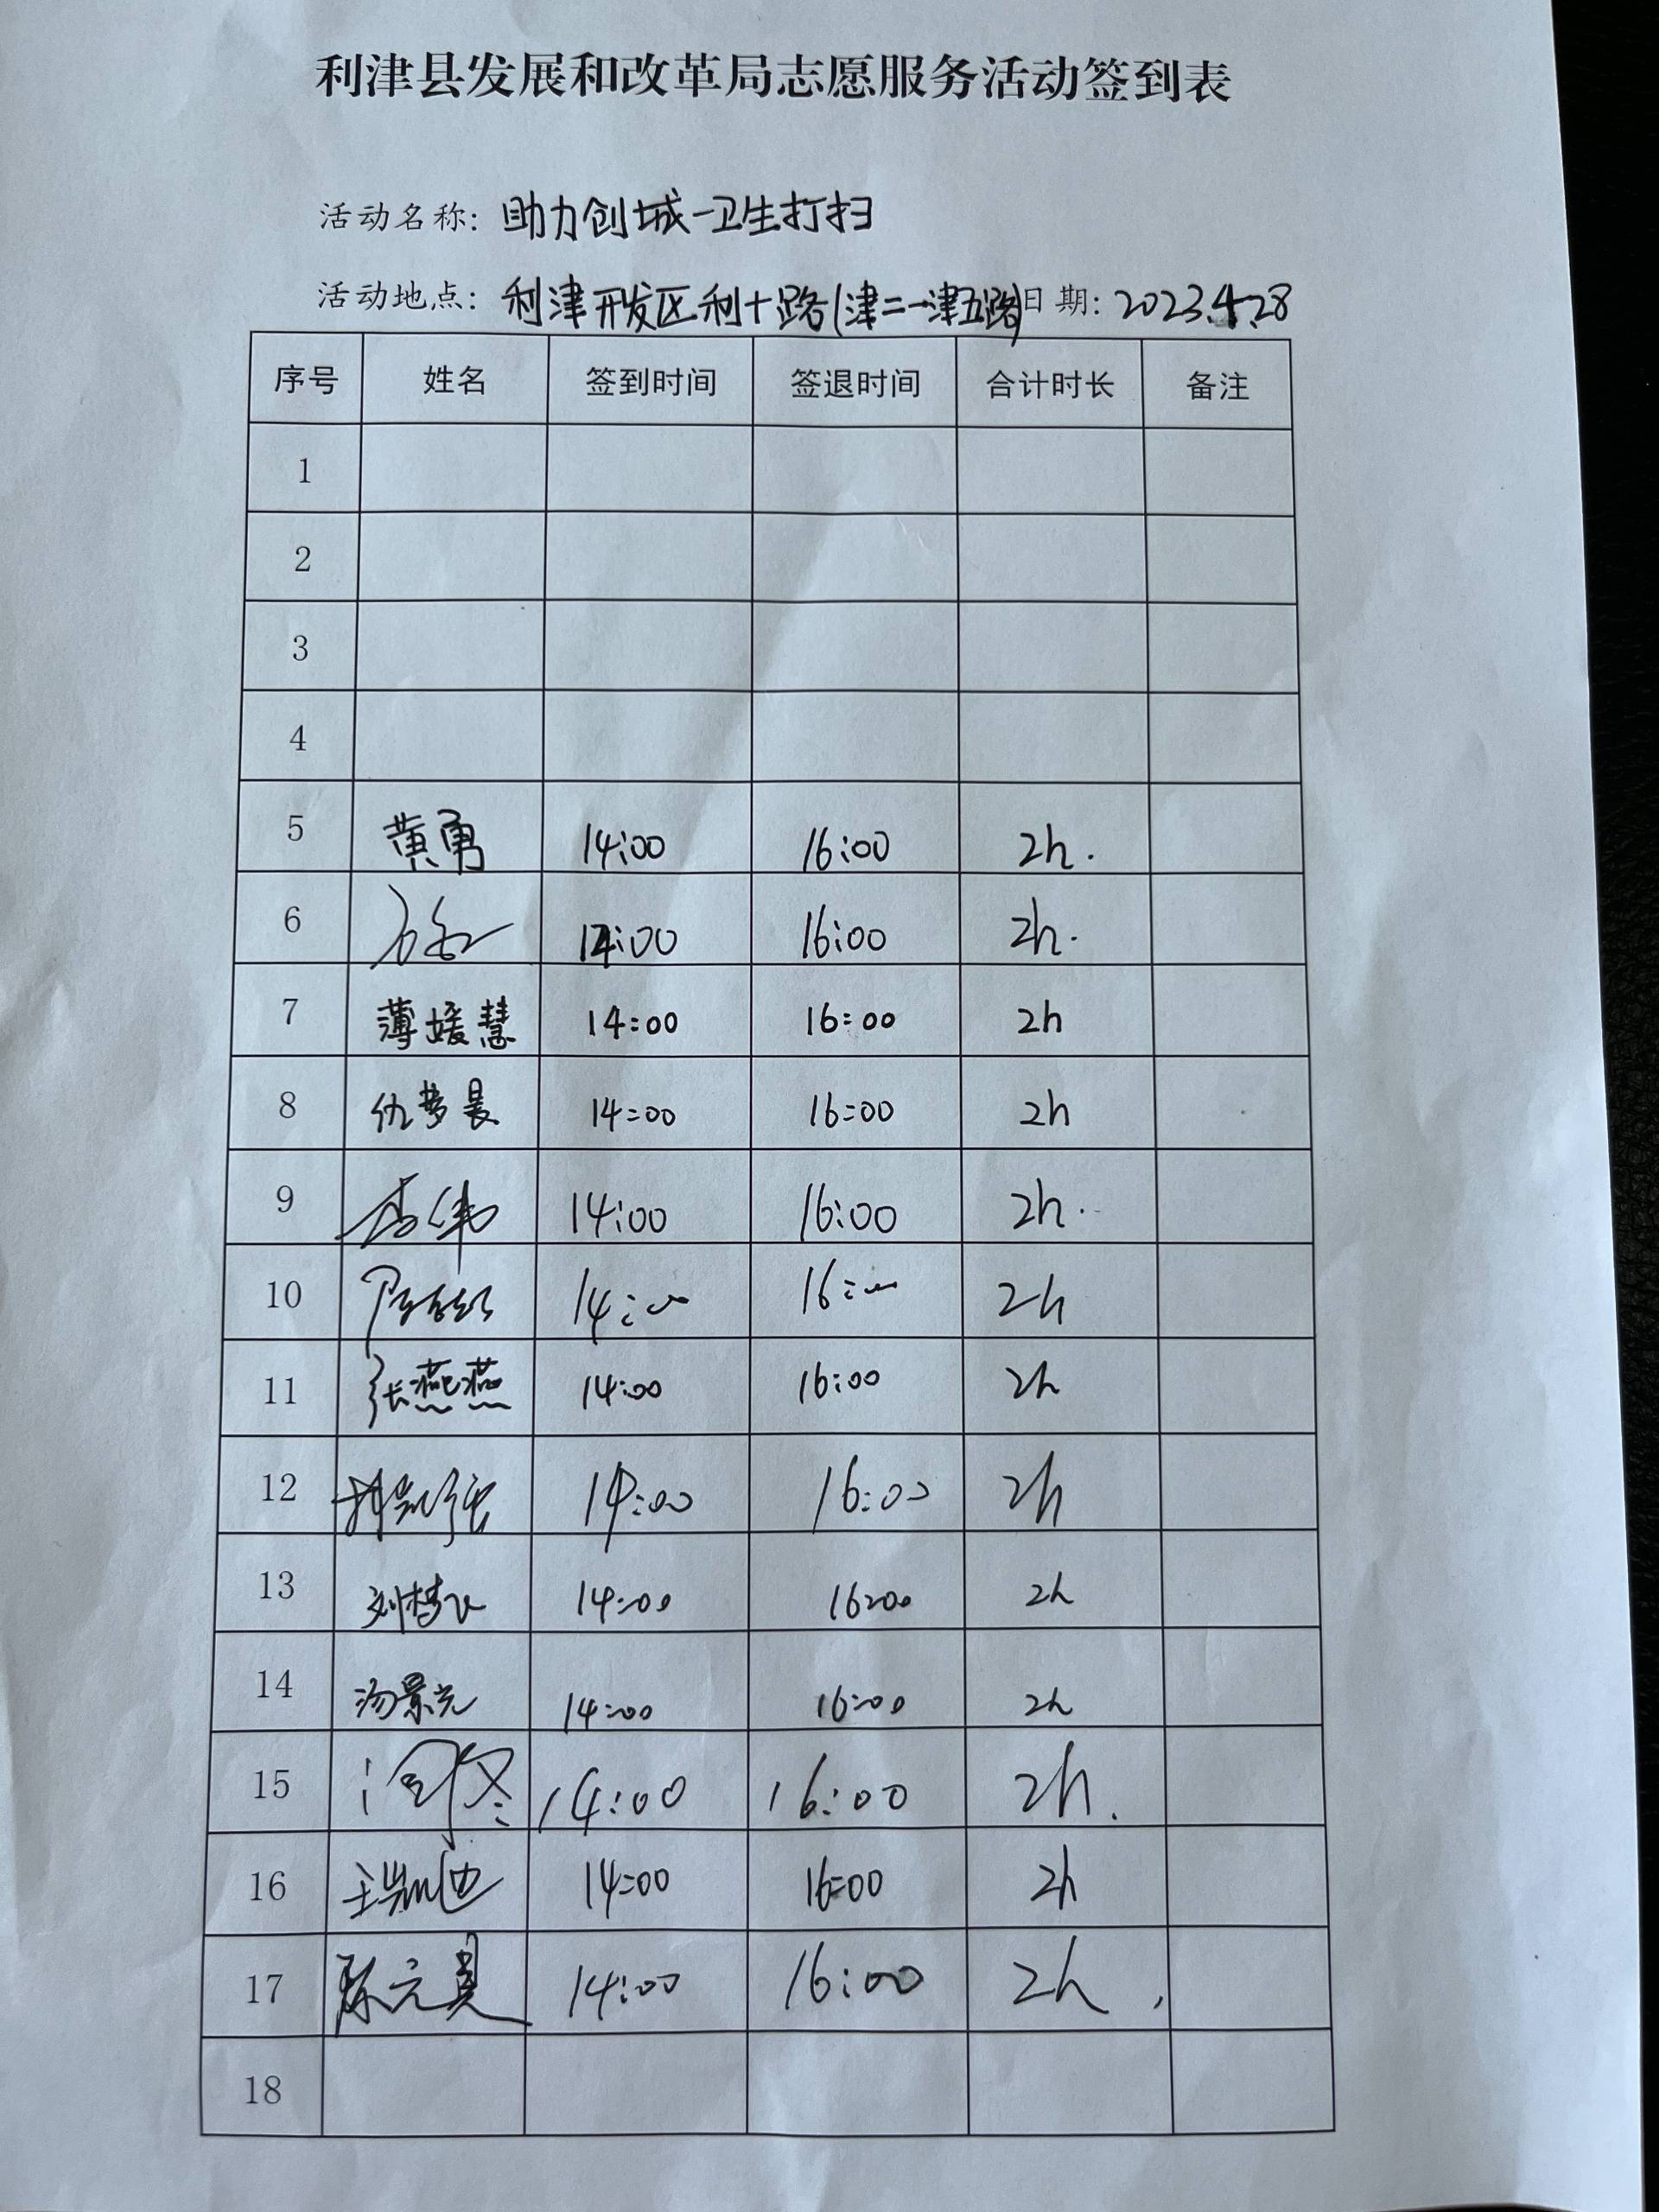 利津县发展和改革局志愿服务活动签到表
活动名称: 助力创城一卫生打扫
活动地点: 利津开发区利十路(津二一津五路) 日期: 2023.4.28
序号 姓名 签到时间 签退时间 合计时长 备注
1
2
3
4
5 黄勇 14:00 16:00 2h.
6 14:00 16:00 2h.
7 薄媛慧 14:00 16:00 2h
8 仇梦晨 14:00 16:00 2h
9 李伟 14:00 16:00 2h.
10 14:00 16:00 2h
11 张燕燕 14:00 16:00 2h
12 14:00 16:00 2h
13 14:00 16:00 2h
14 汤景元 14:00 16:00 2h
15 14:00 16:00 2h.
16 王凯迪 14:00 16:00 2h
17 14:00 16:00 2h
18